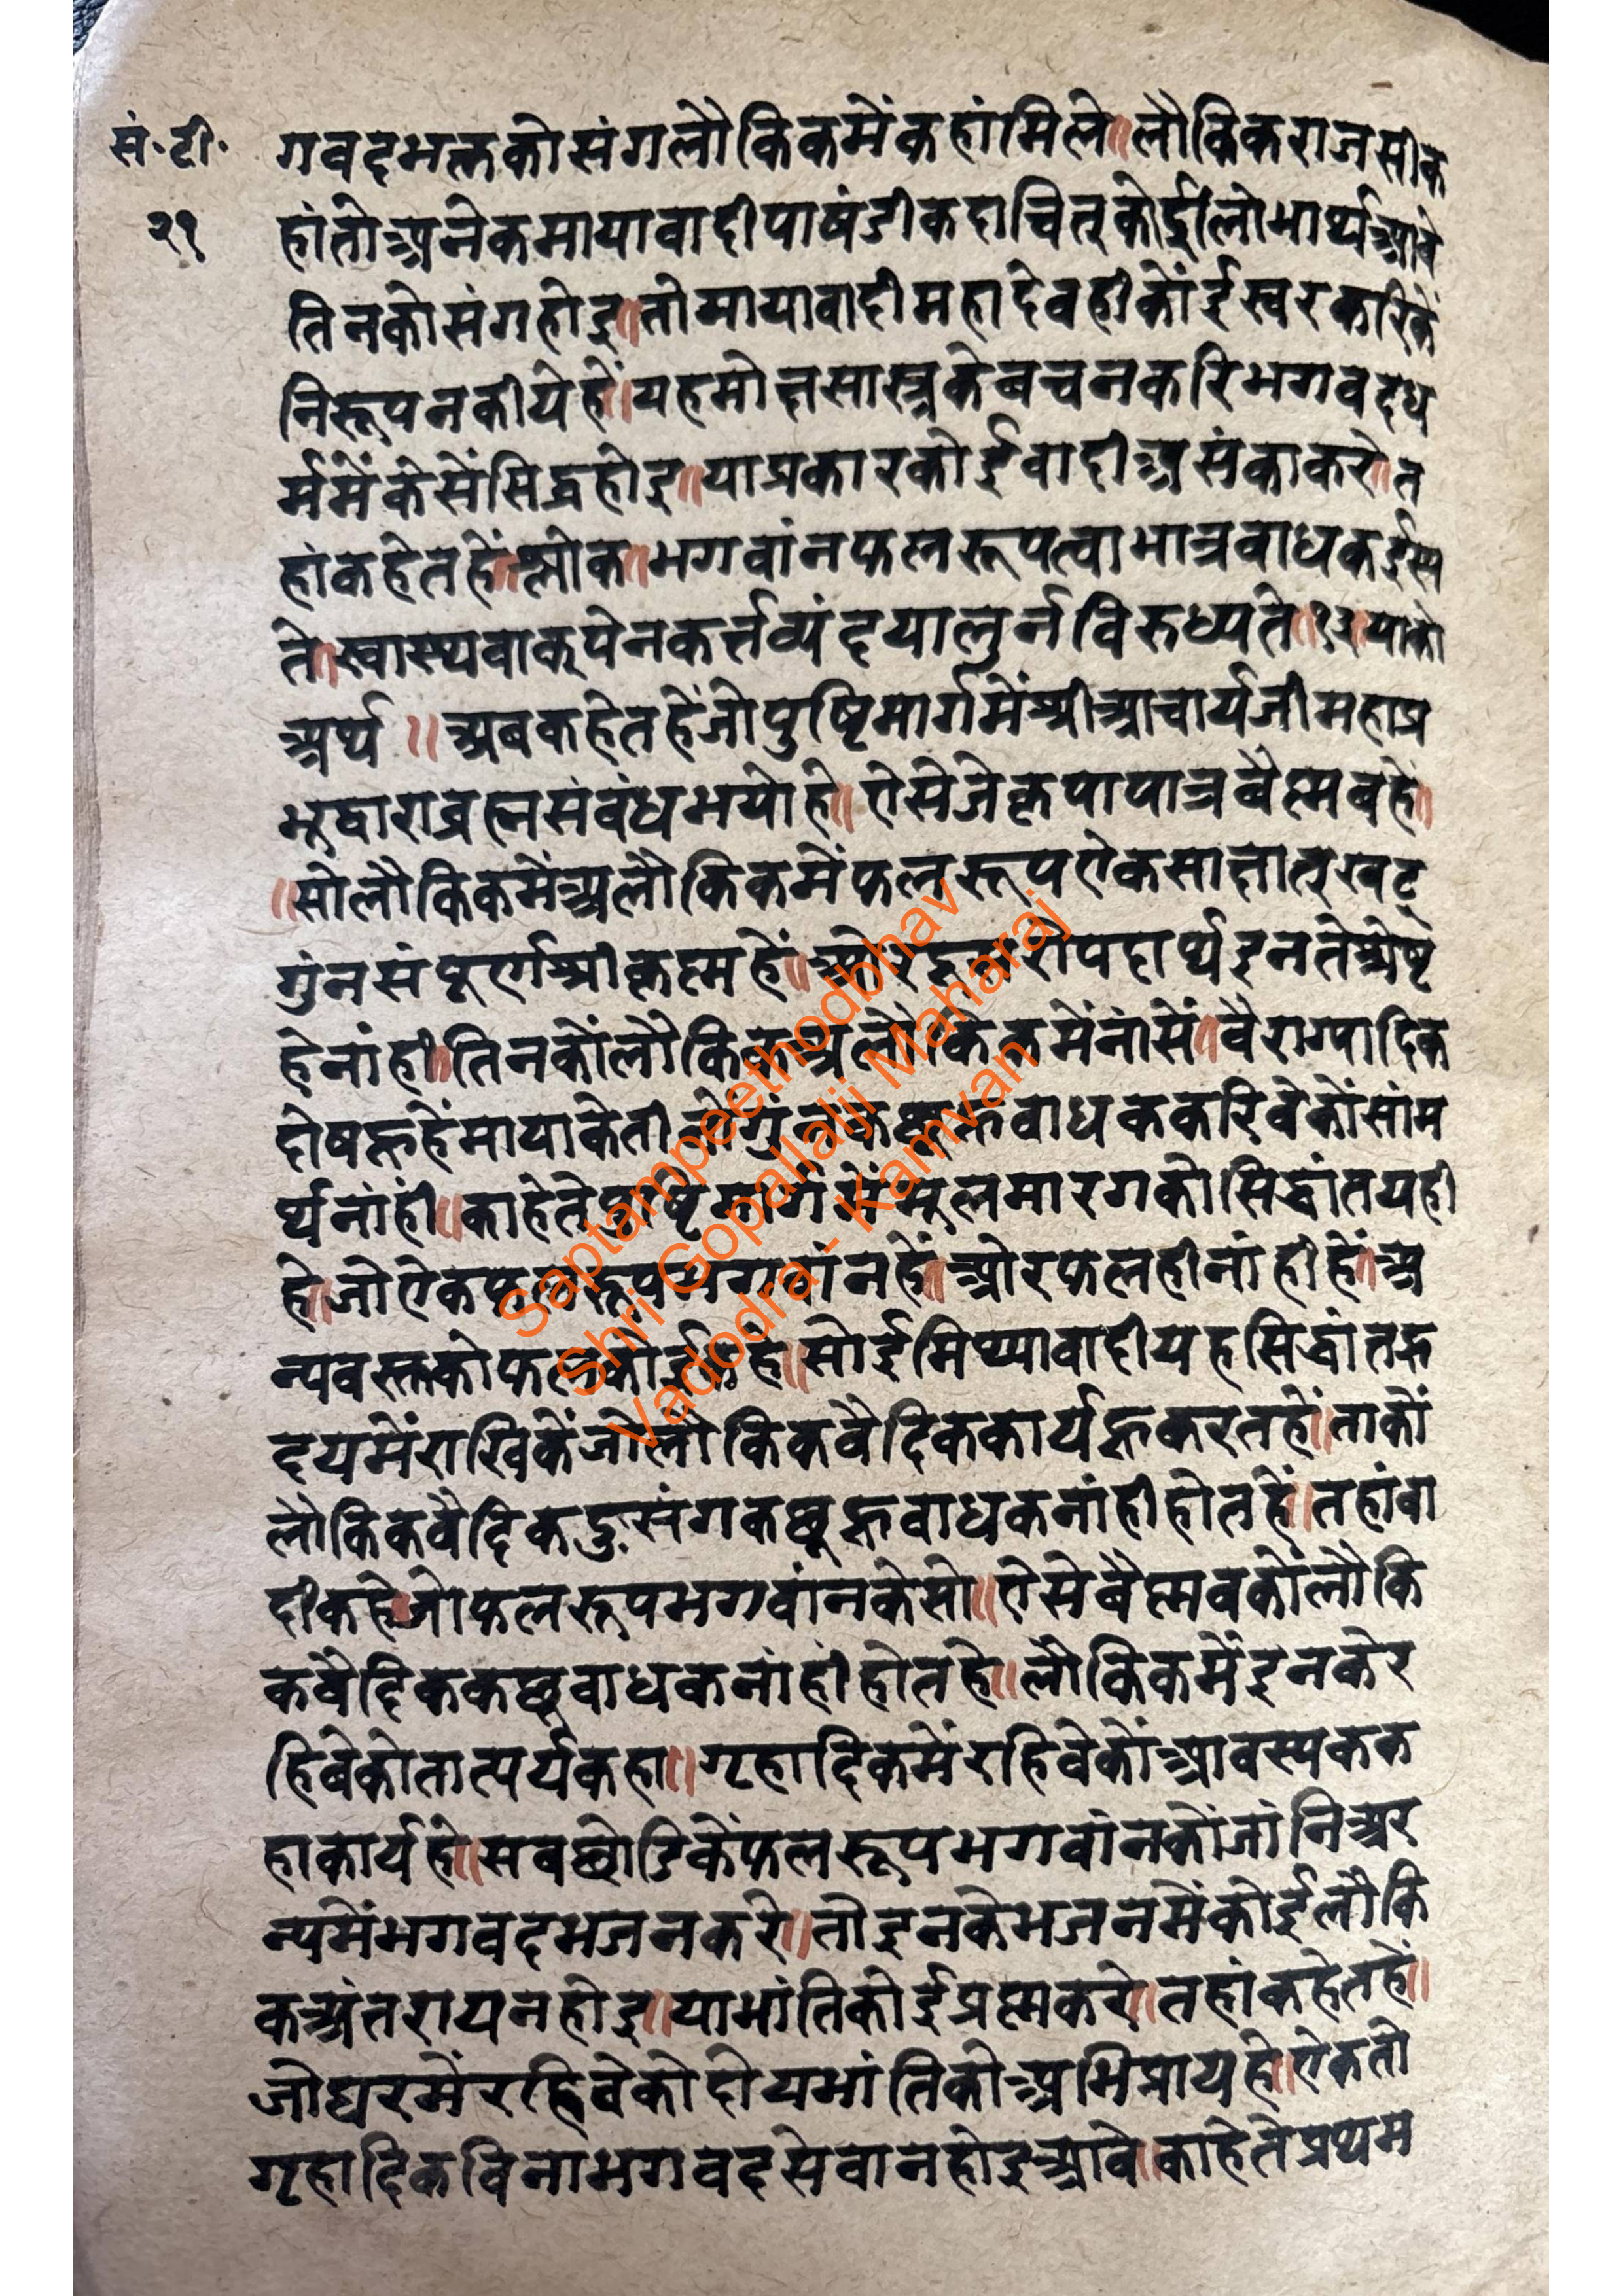 सं.टी.
२१
गवदभक्तकोसंगलौकिकमेंकहांमिले॥लौकिकराजसीक
हांतोअनेकमायावादीपाषंडीकदाचित्कोईलोभार्थआवे
तिनकोसंगहोइ॥तोमायावादीमहादेवहीकोंईस्वरकरिकें
निरूपनकीयेहें॥यहमोक्षसास्त्रकेबचनकरिभगवदध
र्ममेंकेसेंसिद्धहोइ॥याप्रकारकोईवादीअसंकाकरे॥त
हांकहेतहें॥श्लोक॥भगवांनफलरूपत्वाभान्नवाधकईस्य
ते॥स्वास्थ्यवाक्पेनकर्त्तव्यंदयालुर्नविरुध्यते॥१३॥याको
अर्थ॥अबकहेतहेंजोपुष्टिमार्गमेंश्रीआचार्यजीमहाप्र
भुद्वाराब्रह्मसंबंधभयोहे॥ऐसेजेकृपापात्रबैष्मवहें॥
॥सोलौकिकमेंअलौकिकमेंफलरूपऐकसाक्षात्खट्
गुंनसंपूर्णश्रीकृष्महें॥ओरदूसरोपदार्थइनतेश्रेष्ट
हेनांही॥तिनकोंलौकिकअलौकिकमेंनांसें॥वैराग्यादिक
दोषहूहेंमायाकेतीनोगुंनकछूहूवाधककरिवेकोंसांम
र्थनांहीं॥काहेतेपुष्टिमार्गमेंमुलमारगकोसिद्धांतयही
हे॥जोऐकफलरूपभगवांनहें॥ओरफलहीनांहीहें॥अ
न्यवस्तकोफलकोईकहे॥सोईमिथ्यावादीयहसिद्धांतह्र
दयमेंराखिकेंजोलौकिकवैदिककार्यहूकरतहें॥ताकों
लौकिकवैदिकदुःसंगकछूहूवाधकनांहीहोतहें॥तहांवा
दीकहेजोफलरूपभगवांनकेसो॥ऐसेबैष्मवकोंलौकि
कवैदिककछूवाधकनांहींहोतहे॥लौकिकमेंइनकेर
हिवेकोतात्पर्यकहा॥गृहादिकमेंरहिवेकोंआवस्यकक
हाकार्यहे॥सबछोडिकेंफलरूपभगवांनकोंजांनिअर
न्यमेंभगवदभजनकरे॥तोइनकेभजनमेंकोईलौकि
कअंतरायनहोइ॥याभांतिकोईप्रष्मकरे॥तहांकहेतहें॥
जोघरमेंरहिवेकोदोयभांतिकोअभिप्रायहे॥ऐकतो
गृहादिकविनाभगवदसेवानहोइआवे॥काहेतेप्रथम
Saptampeethodbhav
Shri Gopallalji Maharaj
Vadodra - Kamvan